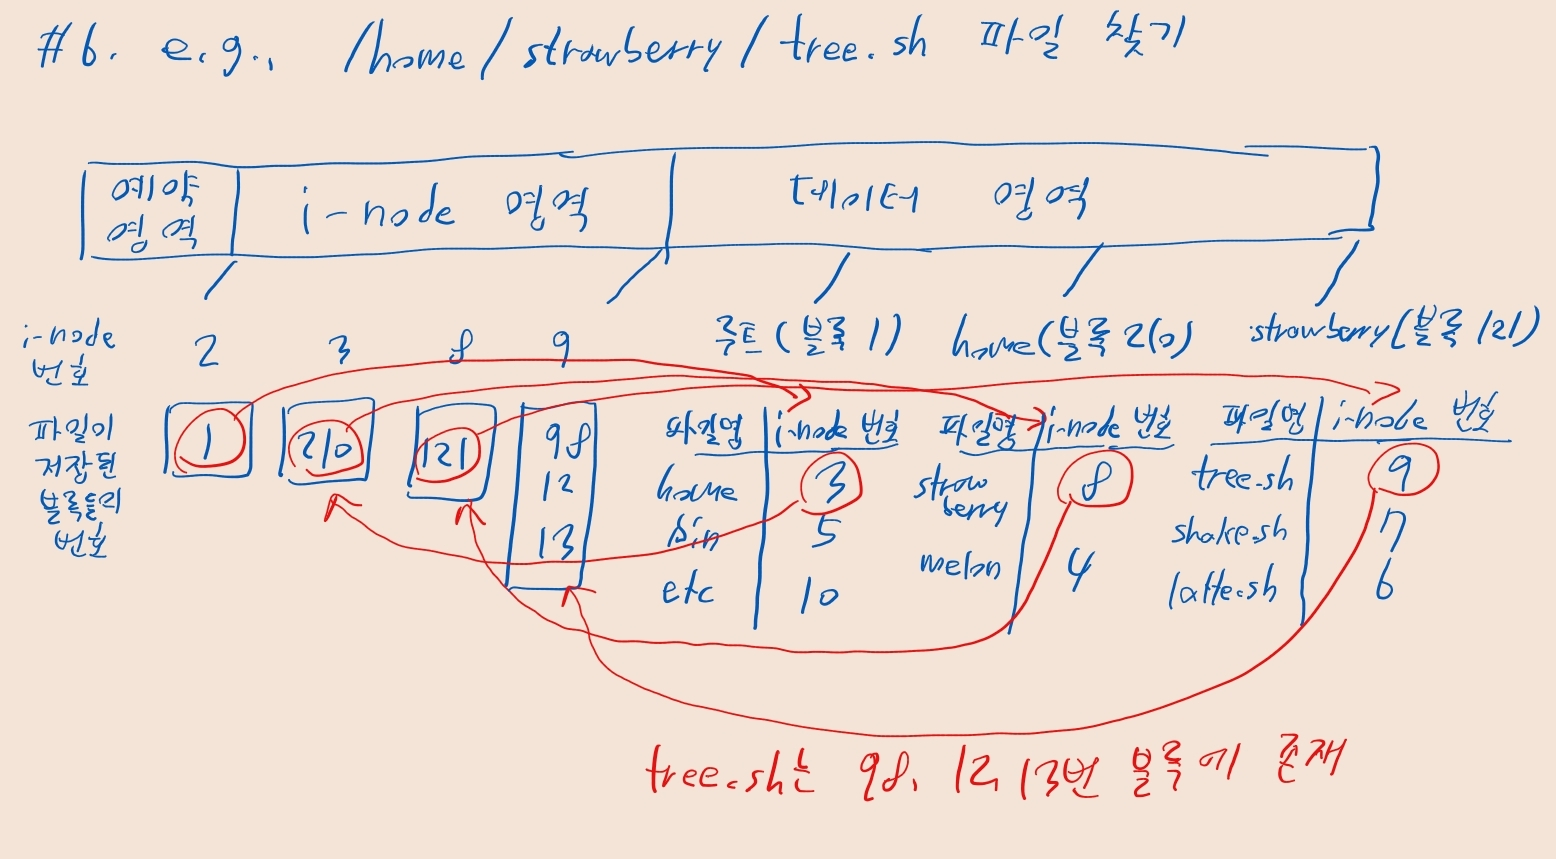 #6. e.g., /home/strawberry/tree.sh 파일 찾기
예약 영역
i-node 영역
데이터 영역
i-node 번호
2 3 8 9
루트 (블록 1)
home(블록 210)
strawberry(블록 121)
파일이 저장된 블록들의 번호
1
210
121
98
12
13
파일명 i-node 번호
home 3
bin 5
etc 10
파일명 i-node 번호
strawberry 8
melon 4
파일명 i-node 번호
tree.sh 9
shake.sh 7
latte.sh 6
tree.sh는 98, 12, 13번 블록에 존재